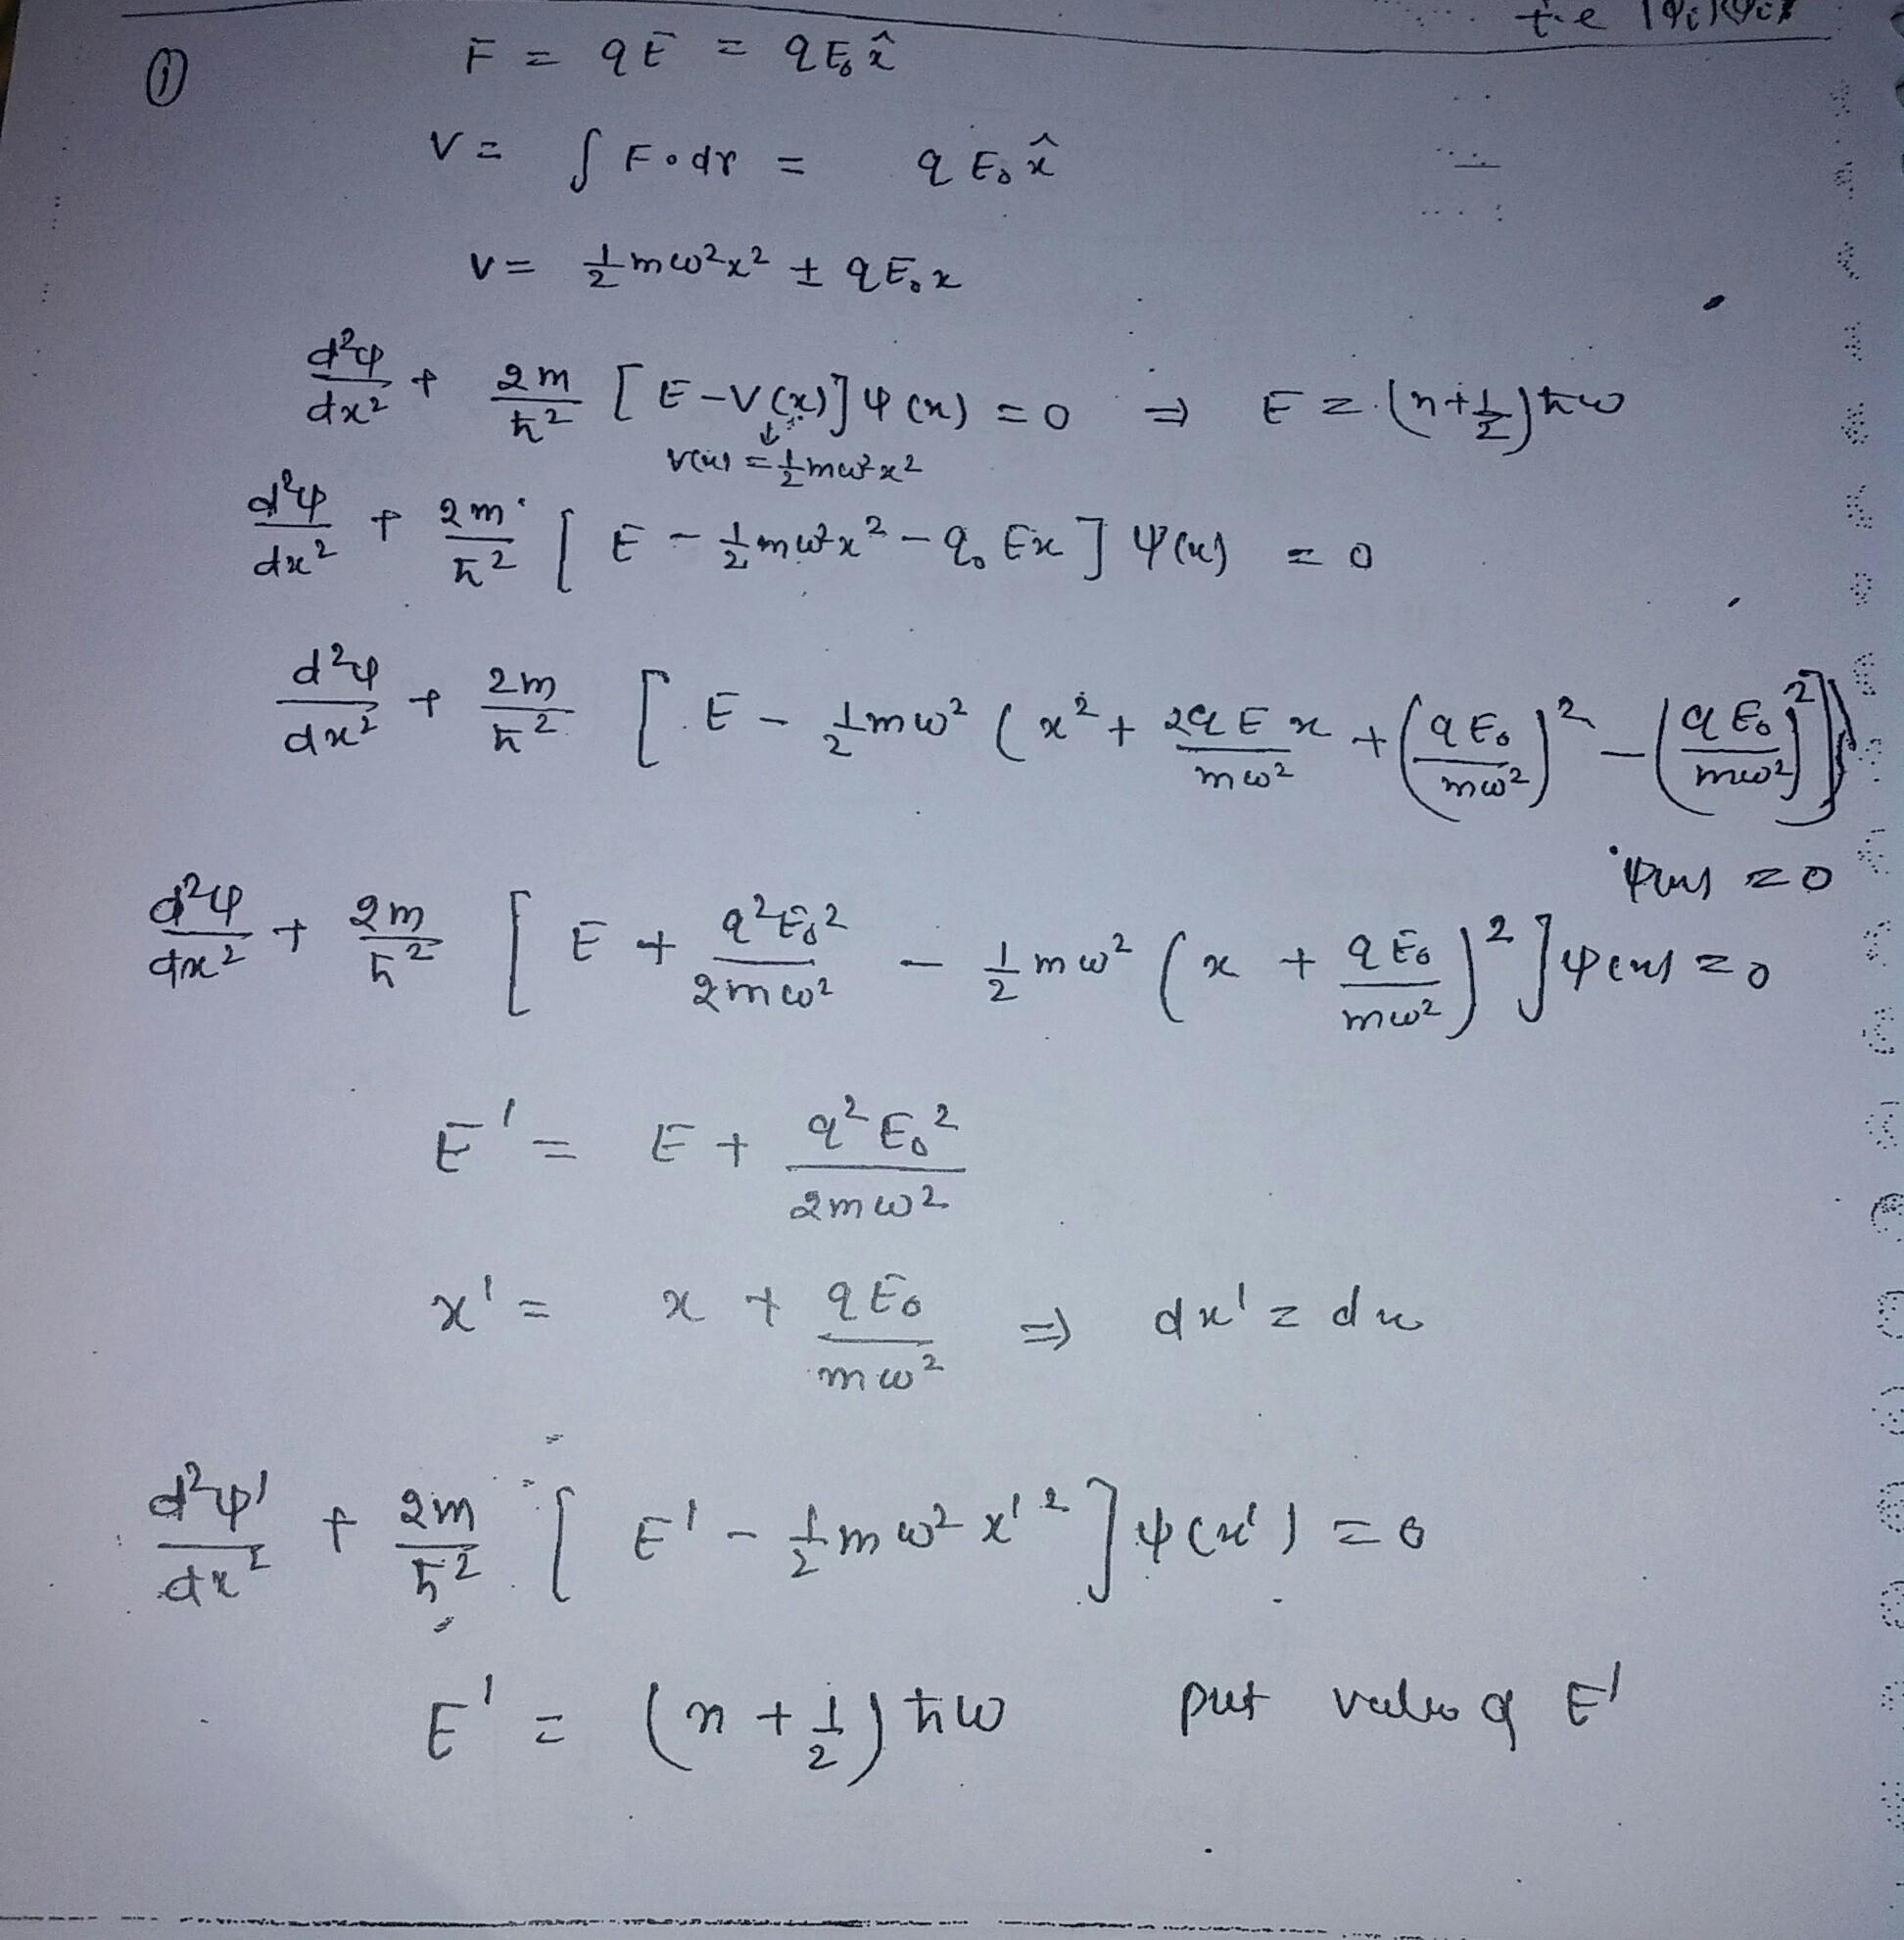 i.e |φi⟩⟨φi|
① F = qE = qE₀x̂
V = ∫ F∘dr = qE₀x̂
V = ½mω²x² ± qE₀x
d²ψ/dx² + 2m/ħ² [E-V(x)]ψ(x) = 0 ⇒ E = (n+½)ħω
↓
V(x) = ½mω²x²
d²ψ/dx² + 2m/ħ² [E - ½mω²x² - q₀Ex] ψ(x) = 0
d²ψ/dx² + 2m/ħ² [E - ½mω² (x² + 2qEx/mω² + (qE₀/mω²)² - (qE₀/mω²)²)]
ψ(x) = 0
d²ψ/dx² + 2m/ħ² [E + q²E₀²/2mω² - ½mω² (x + qE₀/mω²)²]ψ(x) = 0
E' = E + q²E₀²/2mω²
x' = x + qE₀/mω² ⇒ dx' = dx
d²ψ'/dx² + 2m/ħ² [E' - ½mω²x'²]ψ(x') = 0
E' = (n + ½)ħω put value of E'